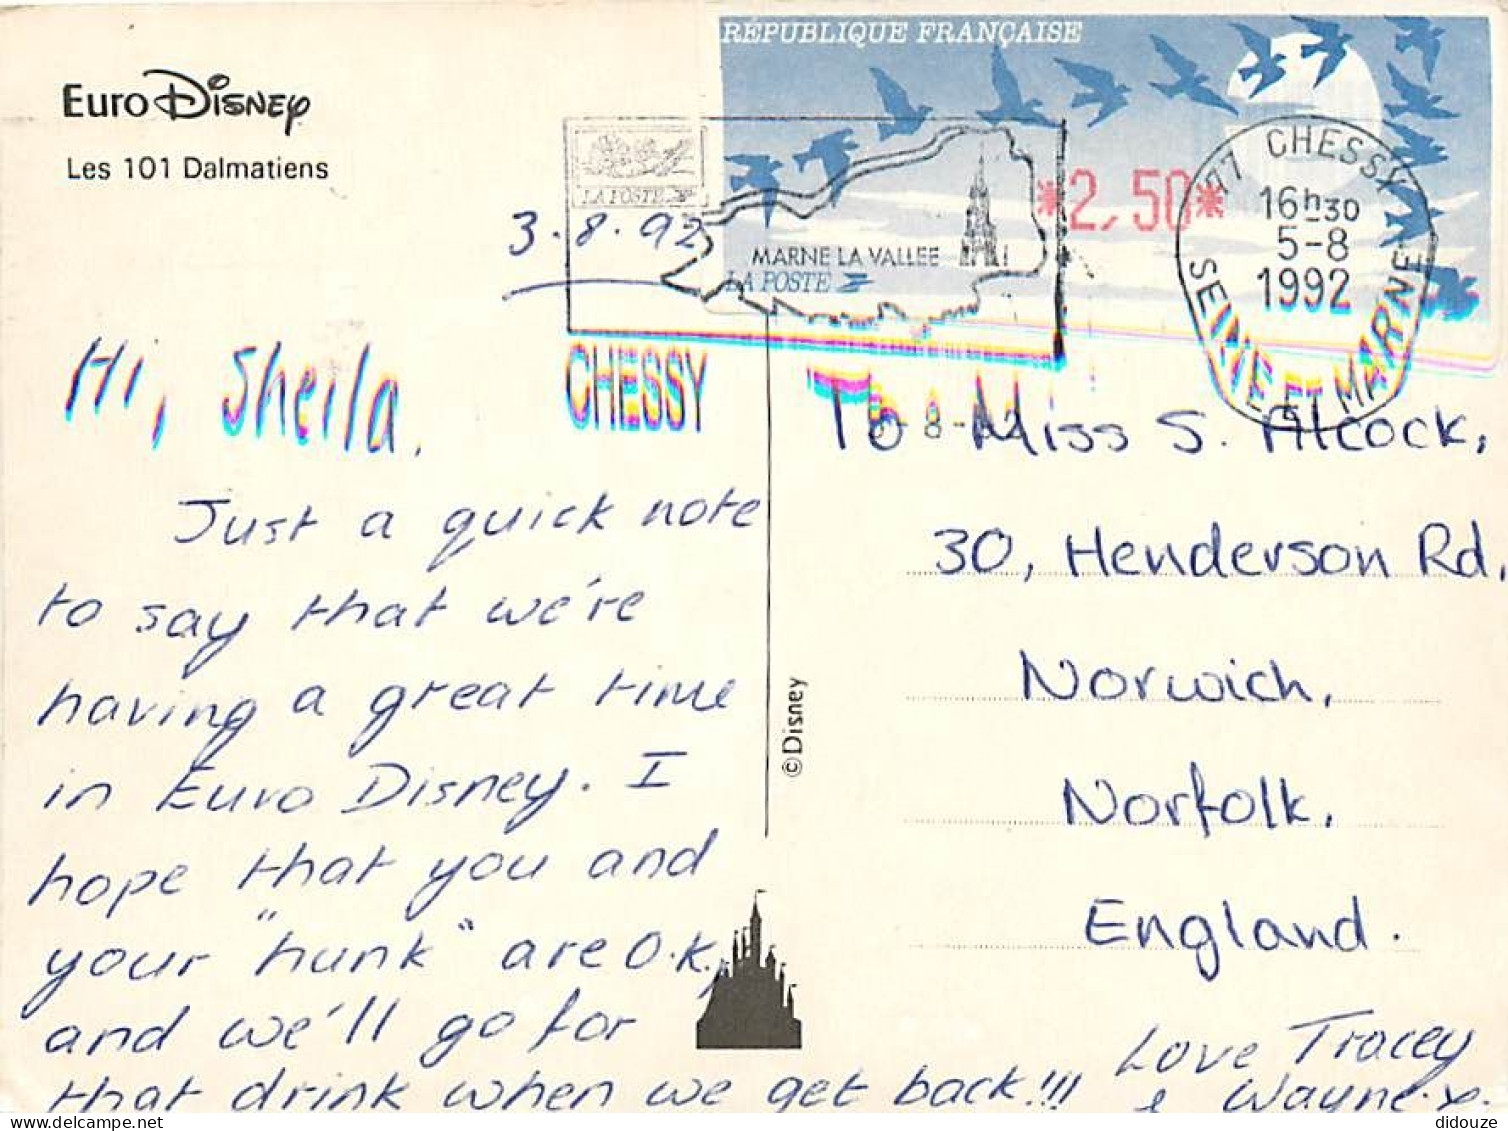 Euro Disney
Les 101 Dalmatiens
RÉPUBLIQUE FRANÇAISE
LA POSTE
3.8.92
MARNE LA VALLEE
LA POSTE
*2,50*
77 CHESSY
16h30
5-8
1992
SEINE ET MARNE
CHESSY
Hi, Sheila,
Just a quick note
to say that we're
having a great time
in Euro Disney. I
hope that you and
your "hunk" are O.K,
and we'll go for
that drink when we get back!!!
©Disney
To Miss S. Alcock,
30, Henderson Rd,
Norwich,
Norfolk,
England.
Love Tracey
& Wayne.x.
didouze